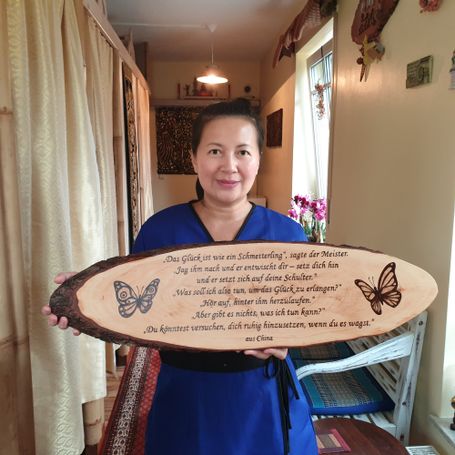 „Das Glück ist wie ein Schmetterling“, sagte der Meister.
„Jag ihm nach und er entwischt dir – setz dich hin
und er setzt sich auf deine Schulter.“
„Was soll ich also tun, um das Glück zu erlangen?“
„Hör auf, hinter ihm herzulaufen.“
„Aber gibt es nichts, was ich tun kann?“
„Du könntest versuchen, dich ruhig hinzusetzen, wenn du es wagst.“
aus China